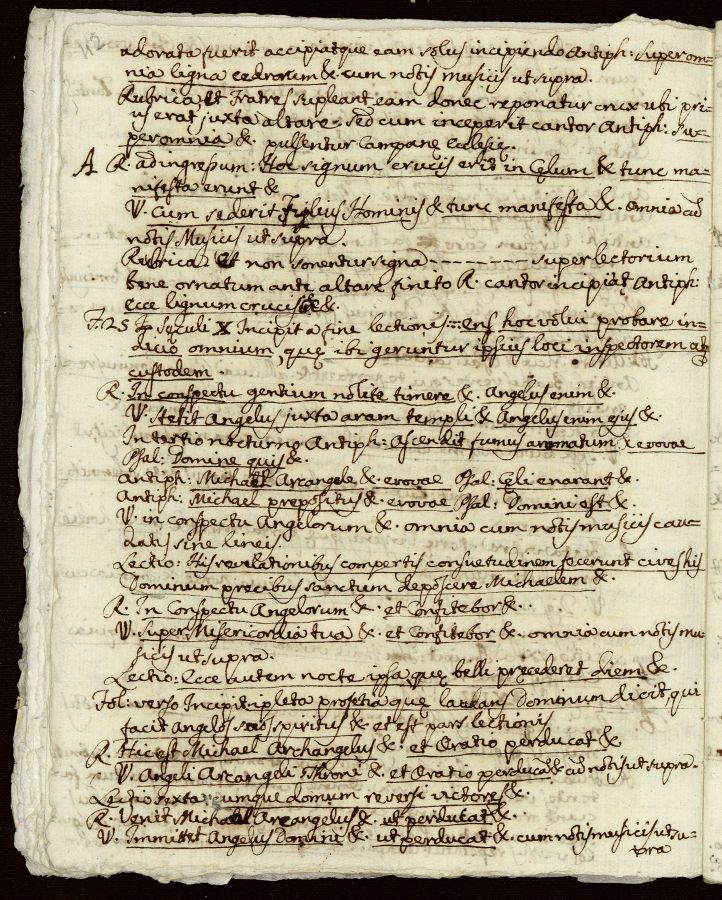 112
adorata fuerit accipiatque eam solus incipiendo Antiph: Super om=
nia ligna cedrorum &. cum notis musicis ut supra.
Rubrica et Fratres supleant eam donec reponatur crux ubi pri=
us erat juxta altare. Sed cum inceperit cantor Antiph: Su=
peromnia &. pulsentur Campanę Eclesię.
A R. ad ingressum: Hoc signum crucis erit in Cęlum & tunc ma=
nifista erunt &
V. Cum sederit Figlius Hominis & tunc manifesta &. omnia cũ
notis Musicis ut supra.
Rubrica. Et non sonentur signa - - - - - - - - super lectorium
bene ornatum ante altare finito R. cantor incipiat Antiph:
ecce lignum crucis &.
F. 25 Sęculi X Incipit a fine lectionis:::: ens hoc volui probare in=
dicio omnium, quę ibi geruntur ipsius loci inspectorem atq
custodem.
R. In conspectu gentium nolite timere &. Angelus enim &.
V. Stetit Angelus juxta aram templi & Angelus enim ejus &.
In tertio nocturno Antiph: Ascendit fumus aromatum & evovae
Psal: Domine quis &.
Antiph: Michael Arcangele &. evovae Psal: Cęli enarant &.
Antiph: Michael prepositus &. evovae Psal: Domini est &.
V. in conspectu Angelorum &. omnia cum notis musicis cau=
datis sine lineis.
Lectio: His revelationibus compertis consuetudinem fecerunt cives his
Dominum precibus sanctum deposcere Michaelem &.
R. In Conspectu Angelorum &. et Confitebor &.
V. Super Misericordia tua &. et Confitebor &. omnia cum notis mu=
sicis ut supra.
Lectio: Ecce autem nocte ipsa quę belli pręcederet diem &.
Fol: verso Incipit: ipleta profetia quę laudans Dominum dicit, qui
facit Angelos suos spiritus &. et est pars lectionis
R. Hic est Michael Archangelus &. et Oratio perducat &.
V. Angeli Arcangeli Throni &. et Oratio perducat &. cũ notis ut supra.
Lectio sexta: cumque domum reversi victores &.
R. Venit Michael Arcangelus &. ut perducat &.
V. Immittet Angelus Domini &. ut perducat &. cum notis musicis ut su=
pra